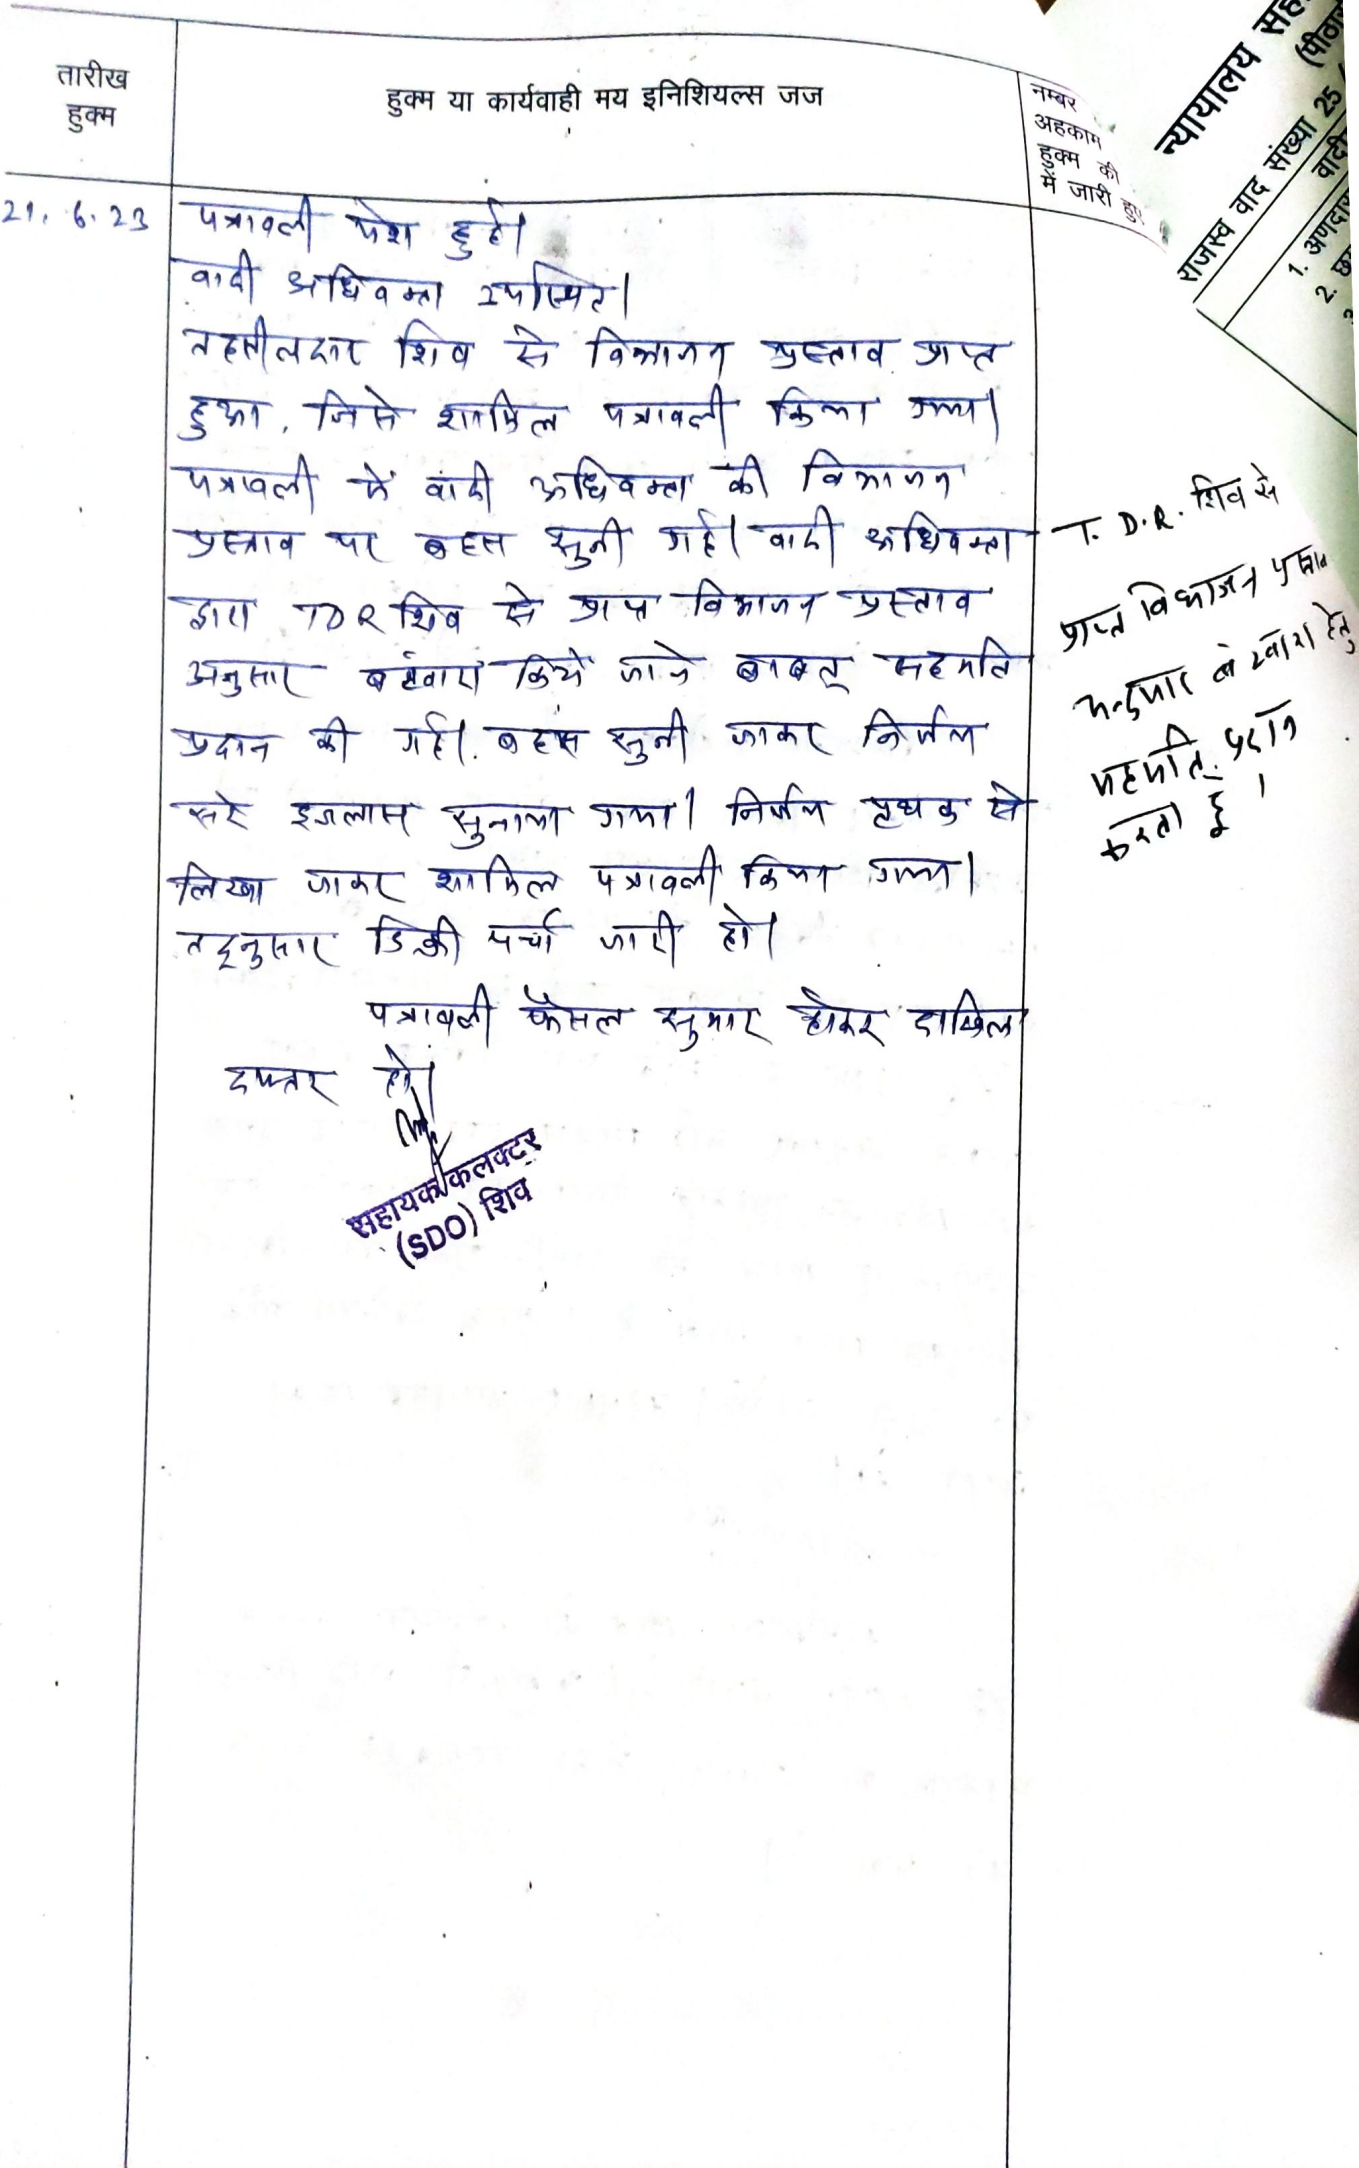 तारीख
हुक्म
हुक्म या कार्यवाही मय इनिशियल्स जज
नम्बर
अहकाम
हुक्म की
में जारी हुए
21.6.23
पत्रावली पेश हुई।
वादी अधिवक्ता उपस्थित।
तहसीलदार शिव से विभाजन प्रस्ताव प्राप्त
हुआ, जिसे शामिल पत्रावली किया गया।
पत्रावली में वादी अधिवक्ता की विभाजन
प्रस्ताव पर बहस सुनी गई। वादी अधिवक्ता
द्वारा TDR शिव से प्राप्त विभाजन प्रस्ताव
अनुसार बंटवारा किये जाने बाबत् सहमति
प्रदान की गई। बहस सुनी जाकर निर्णय
सरे इजलास सुनाया गया। निर्णय पृथक से
लिखा जाकर शामिल पत्रावली किया गया।
तद्नुसार डिक्री पर्चा जारी हो।
पत्रावली फैसल सुमार होकर दाखिल
दफ्तर हो।
सहायक कलक्टर
(SDO) शिव
T. D.R. शिव से
प्राप्त विभाजन प्रस्ताव
अनुसार बंटवारा हेतु
सहमति प्रदान
करता हूँ।
न्यायालय
राजस्व वाद संख्या 25
वादी
1. अणदा
2.